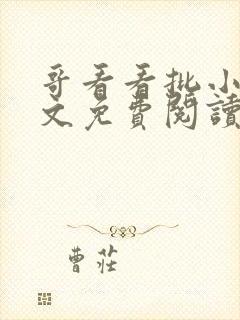 哥看看批小
文免費閱讀
曹莊